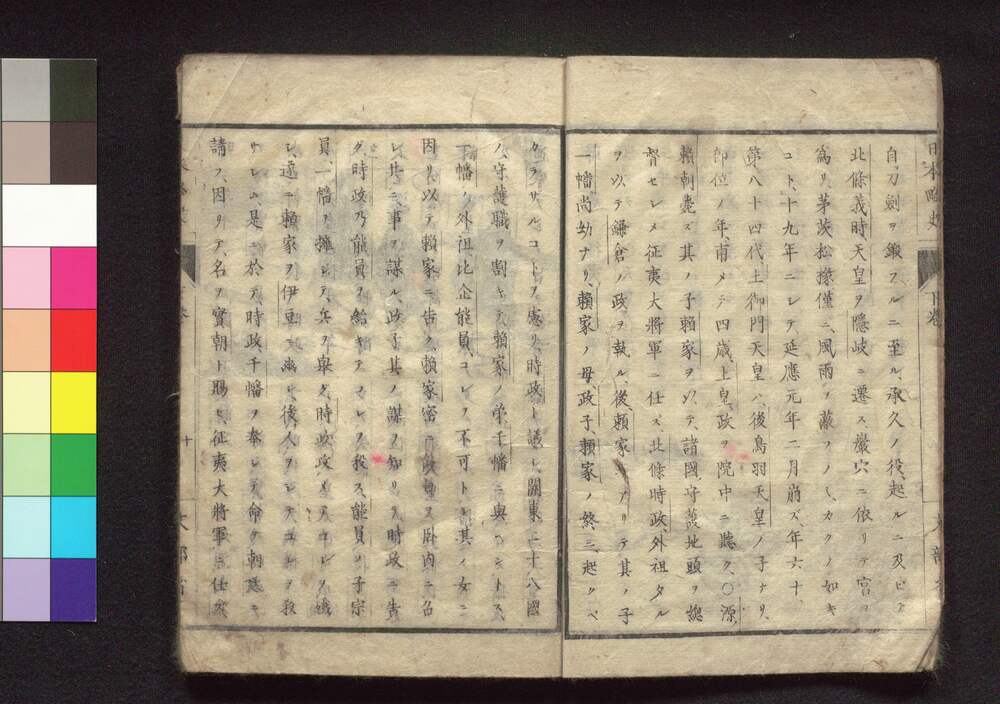 日本略史 下卷
自刀劍ヲ鍛フルニ至ル、承久ノ役、起ルニ及ビテ
北條義時天皇ヲ隱岐ニ遷ス巖穴ニ依リテ宮ヲ
爲リ茅茨松椽僅ニ、風雨ヲ蔽フノミ、カクノ如キ
コト、十九年ニシテ、延應元年二月崩ズ、年六十、
第八十四代、土御門天皇ハ、後鳥羽天皇ノ子ナリ、
卽位ノ年甫メテ四歲、上皇、政ヲ院中ニ聽ク、〇源
賴朝薨ズ其ノ子賴家ヲ以テ、諸國守護地頭ヲ總
督セシメ征夷大將軍ニ任ズ、北條時政、外祖タル
ヲ以テ鎌倉ノ政ヲ執ル、後、賴家 アリテ其ノ子
一幡尚幼ナリ、賴家ノ母政子、賴家ノ終ニ、起ツベ
カラザルコトヲ慮リ、時政ト議シ、關東二十八國
ノ、守護職ヲ割キテ、賴家ノ弟、千幡ニ與ヘントス、
一幡ノ外祖、比企能員、コレヲ不可トシ、其ノ女ニ
因リ、以テ賴家ニ告グ、賴家密ニ能員ヲ臥内ニ召
シ共ニ、事ヲ謀ル、政子其ノ謀ヲ知リ、時政ニ告
グ、時政乃能員ヲ紿キテ、コレヲ殺ス、能員ノ子宗
員、一幡ヲ擁シテ、兵ヲ擧グ、時政、攻メテコレヲ滅
シ、遂ニ賴家ヲ伊豆ニ幽シ、後、人ヲシテ、コレヲ殺
サシム、是ニ於テ、時政、千幡ヲ奉ジテ、命ヲ朝廷ニ
請フ因リテ、名ヲ實朝ト賜ヒ、征夷大將軍ニ任ズ
十